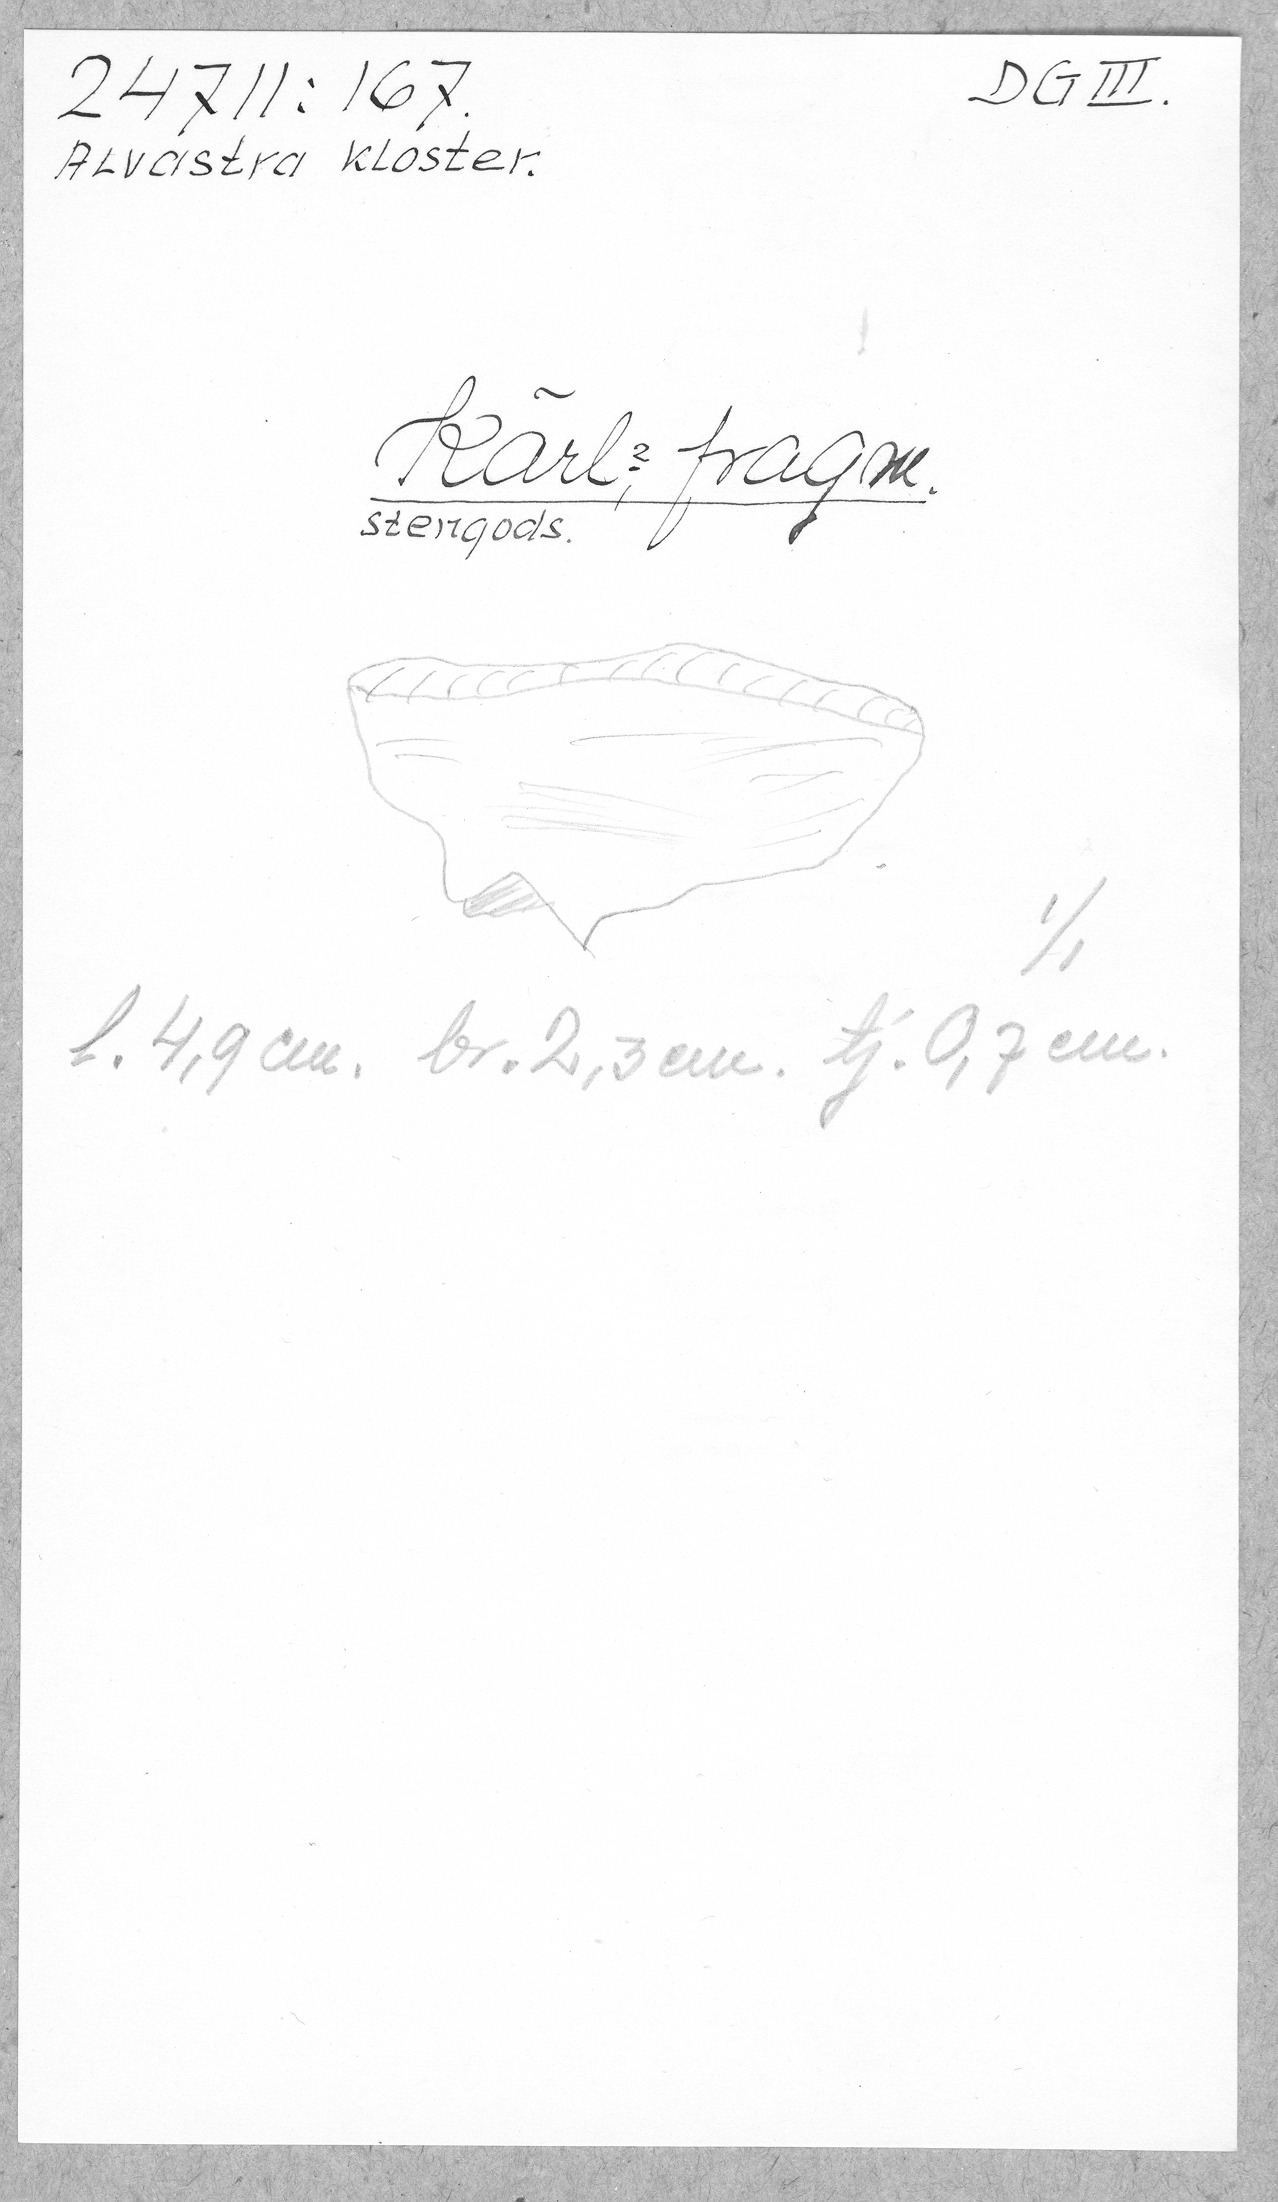 24711:167. DG III.
Alvastra kloster.
Kärl?, fragm.
stengods.
1/1
l. 4,9 cm. br. 2,3 cm. tj. 0,7 cm.